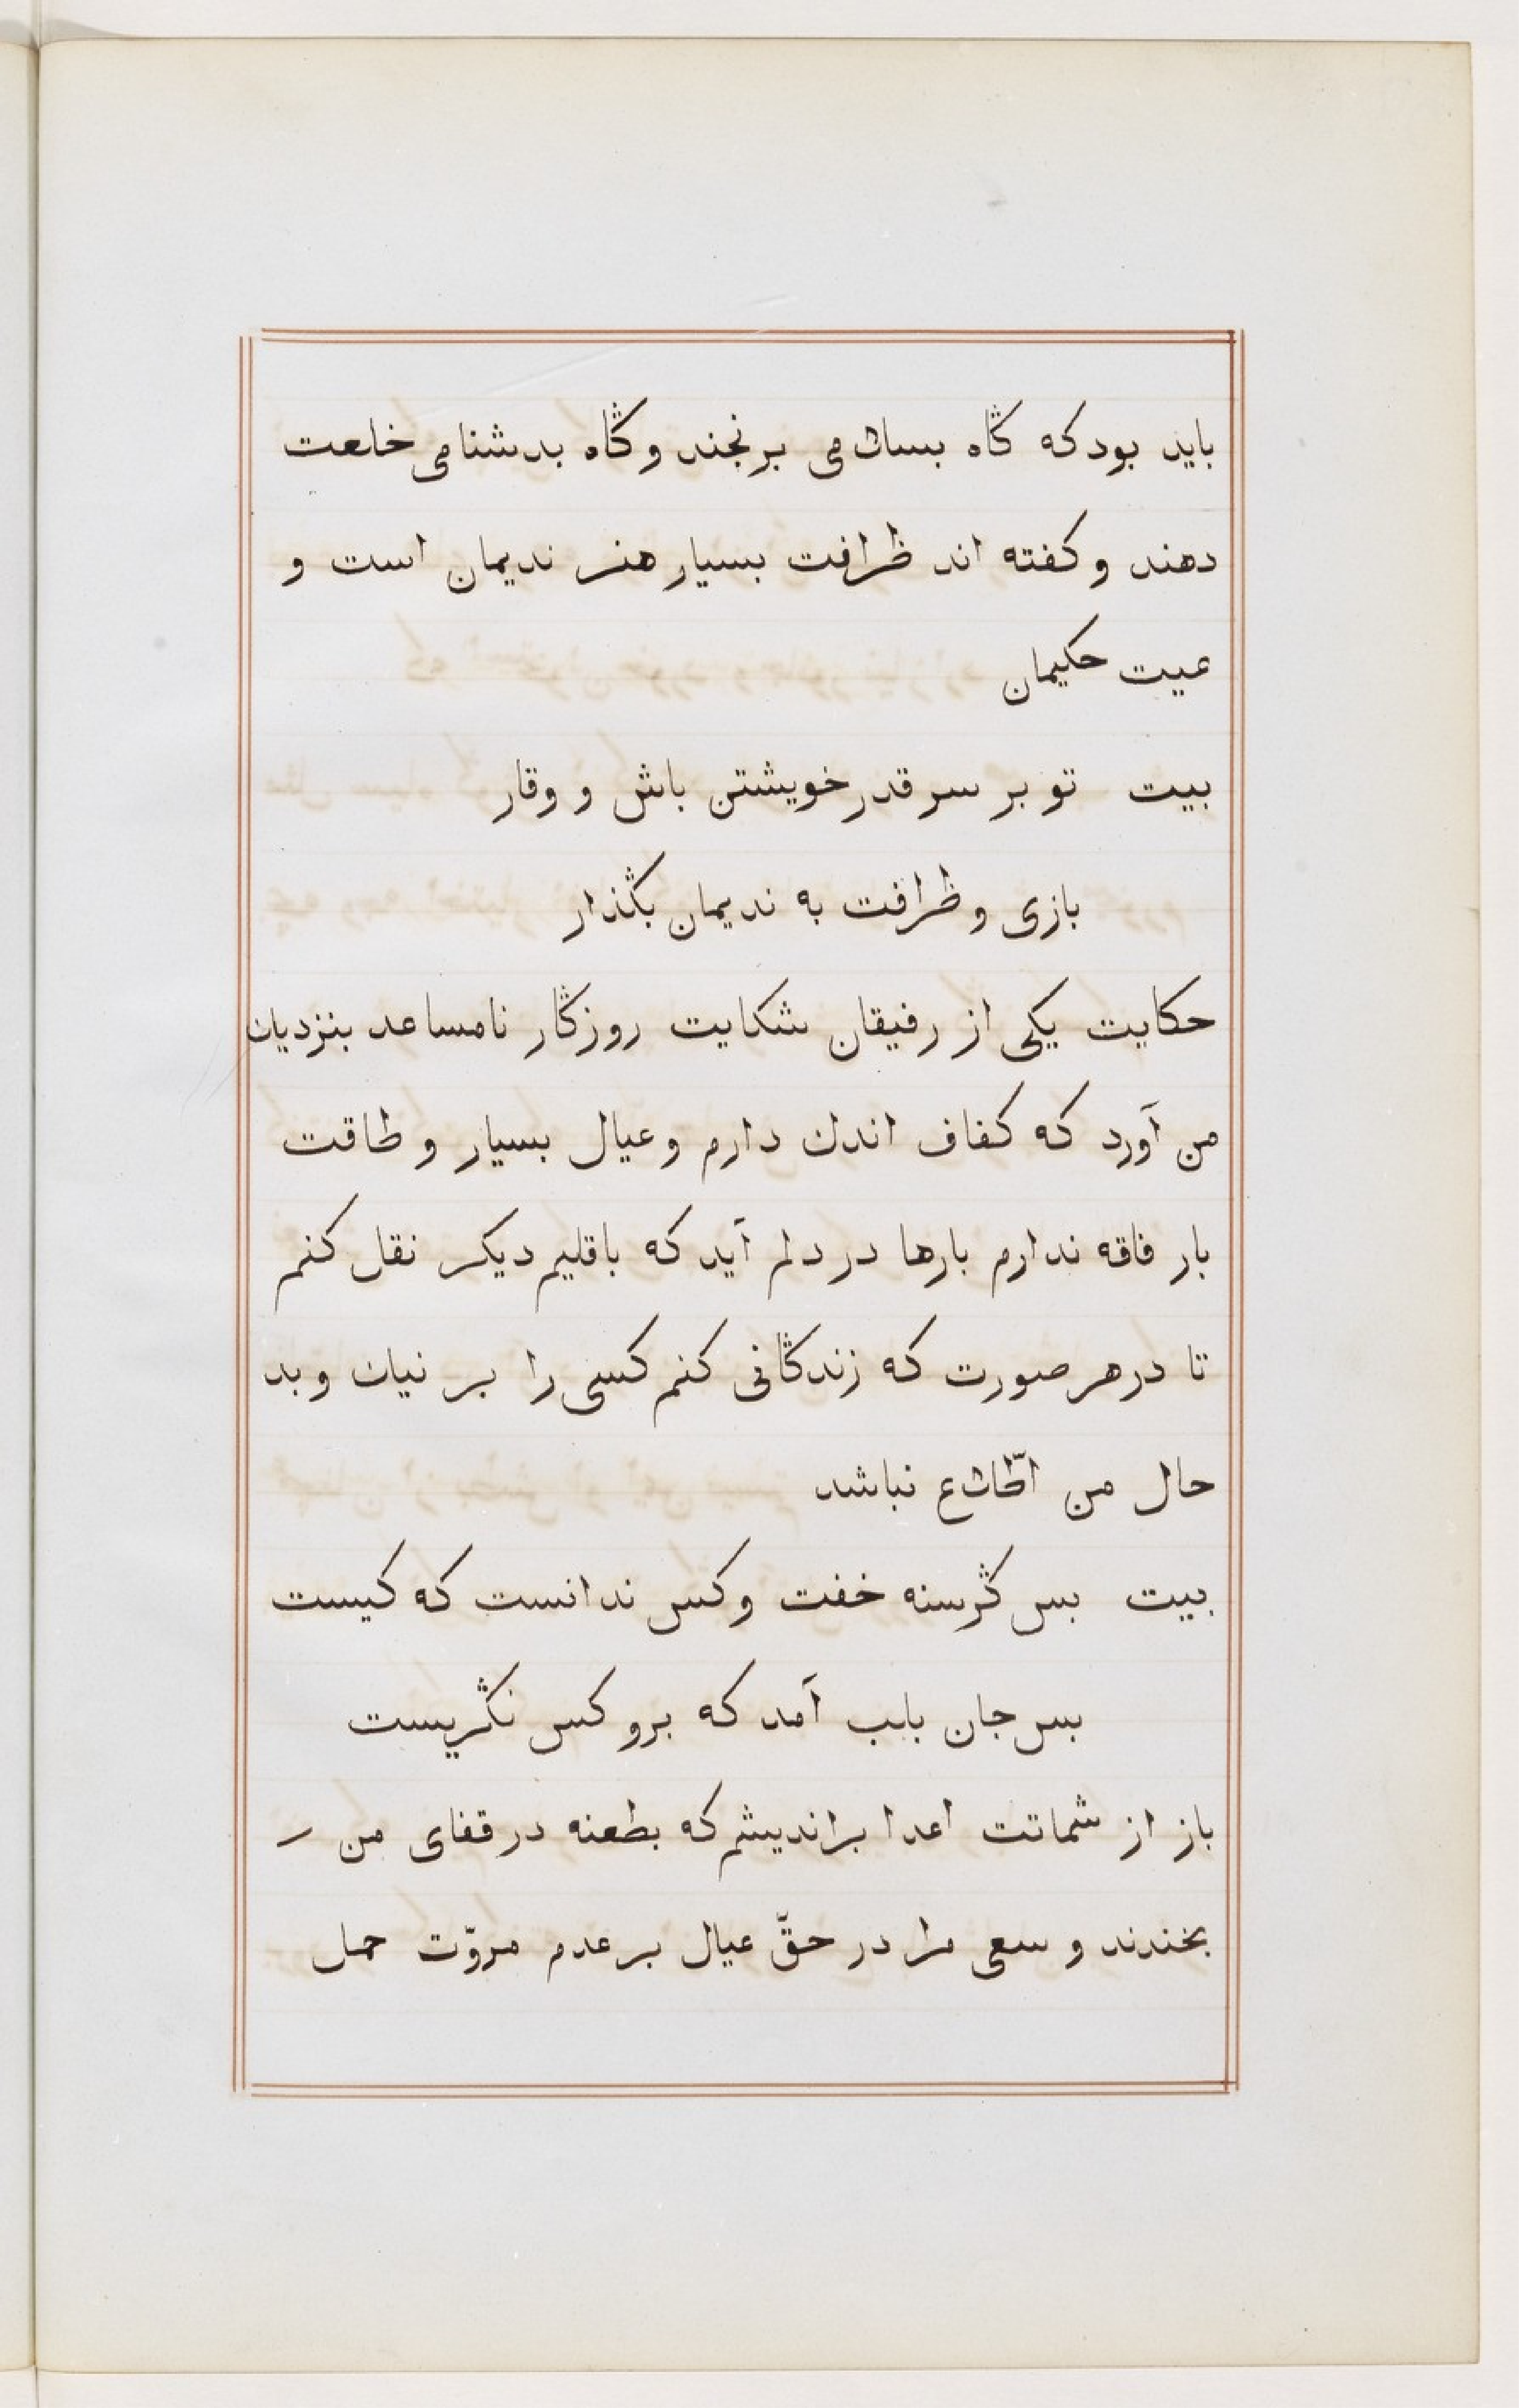 باید بود که گاه بسلامی برنجند و گاه بدشنامی خلعت
دهند و کفته اند ظرافت بسیار هنر ندیمان است و
عیت حکیمان
بیت تو بر سر قدر خویشتن باش و وقار
بازی و ظرافت به ندیمان بگذار
حکایت یکی از رفیقان شکایت روزگار نامساعد بنزدیک
من آورد که کفاف اندک دارم و عیال بسیار و طاقت
بار فاقه ندارم بارها در دلم آید که باقلیم دیکر نقل کنم
تا در هر صورت که زندگانی کنم کسی را بر نیک و بد
حال من اطّلاع نباشد
بیت بس گرسنه خفت و کس ندانست که کیست
بس جان بلب آمد که برو کس نگریست
باز از شماتت اعدا براندیشم که بطعنه در قفای من
بخندند و سعی مرا در حقّ عیال بر عدم مروّت حمل